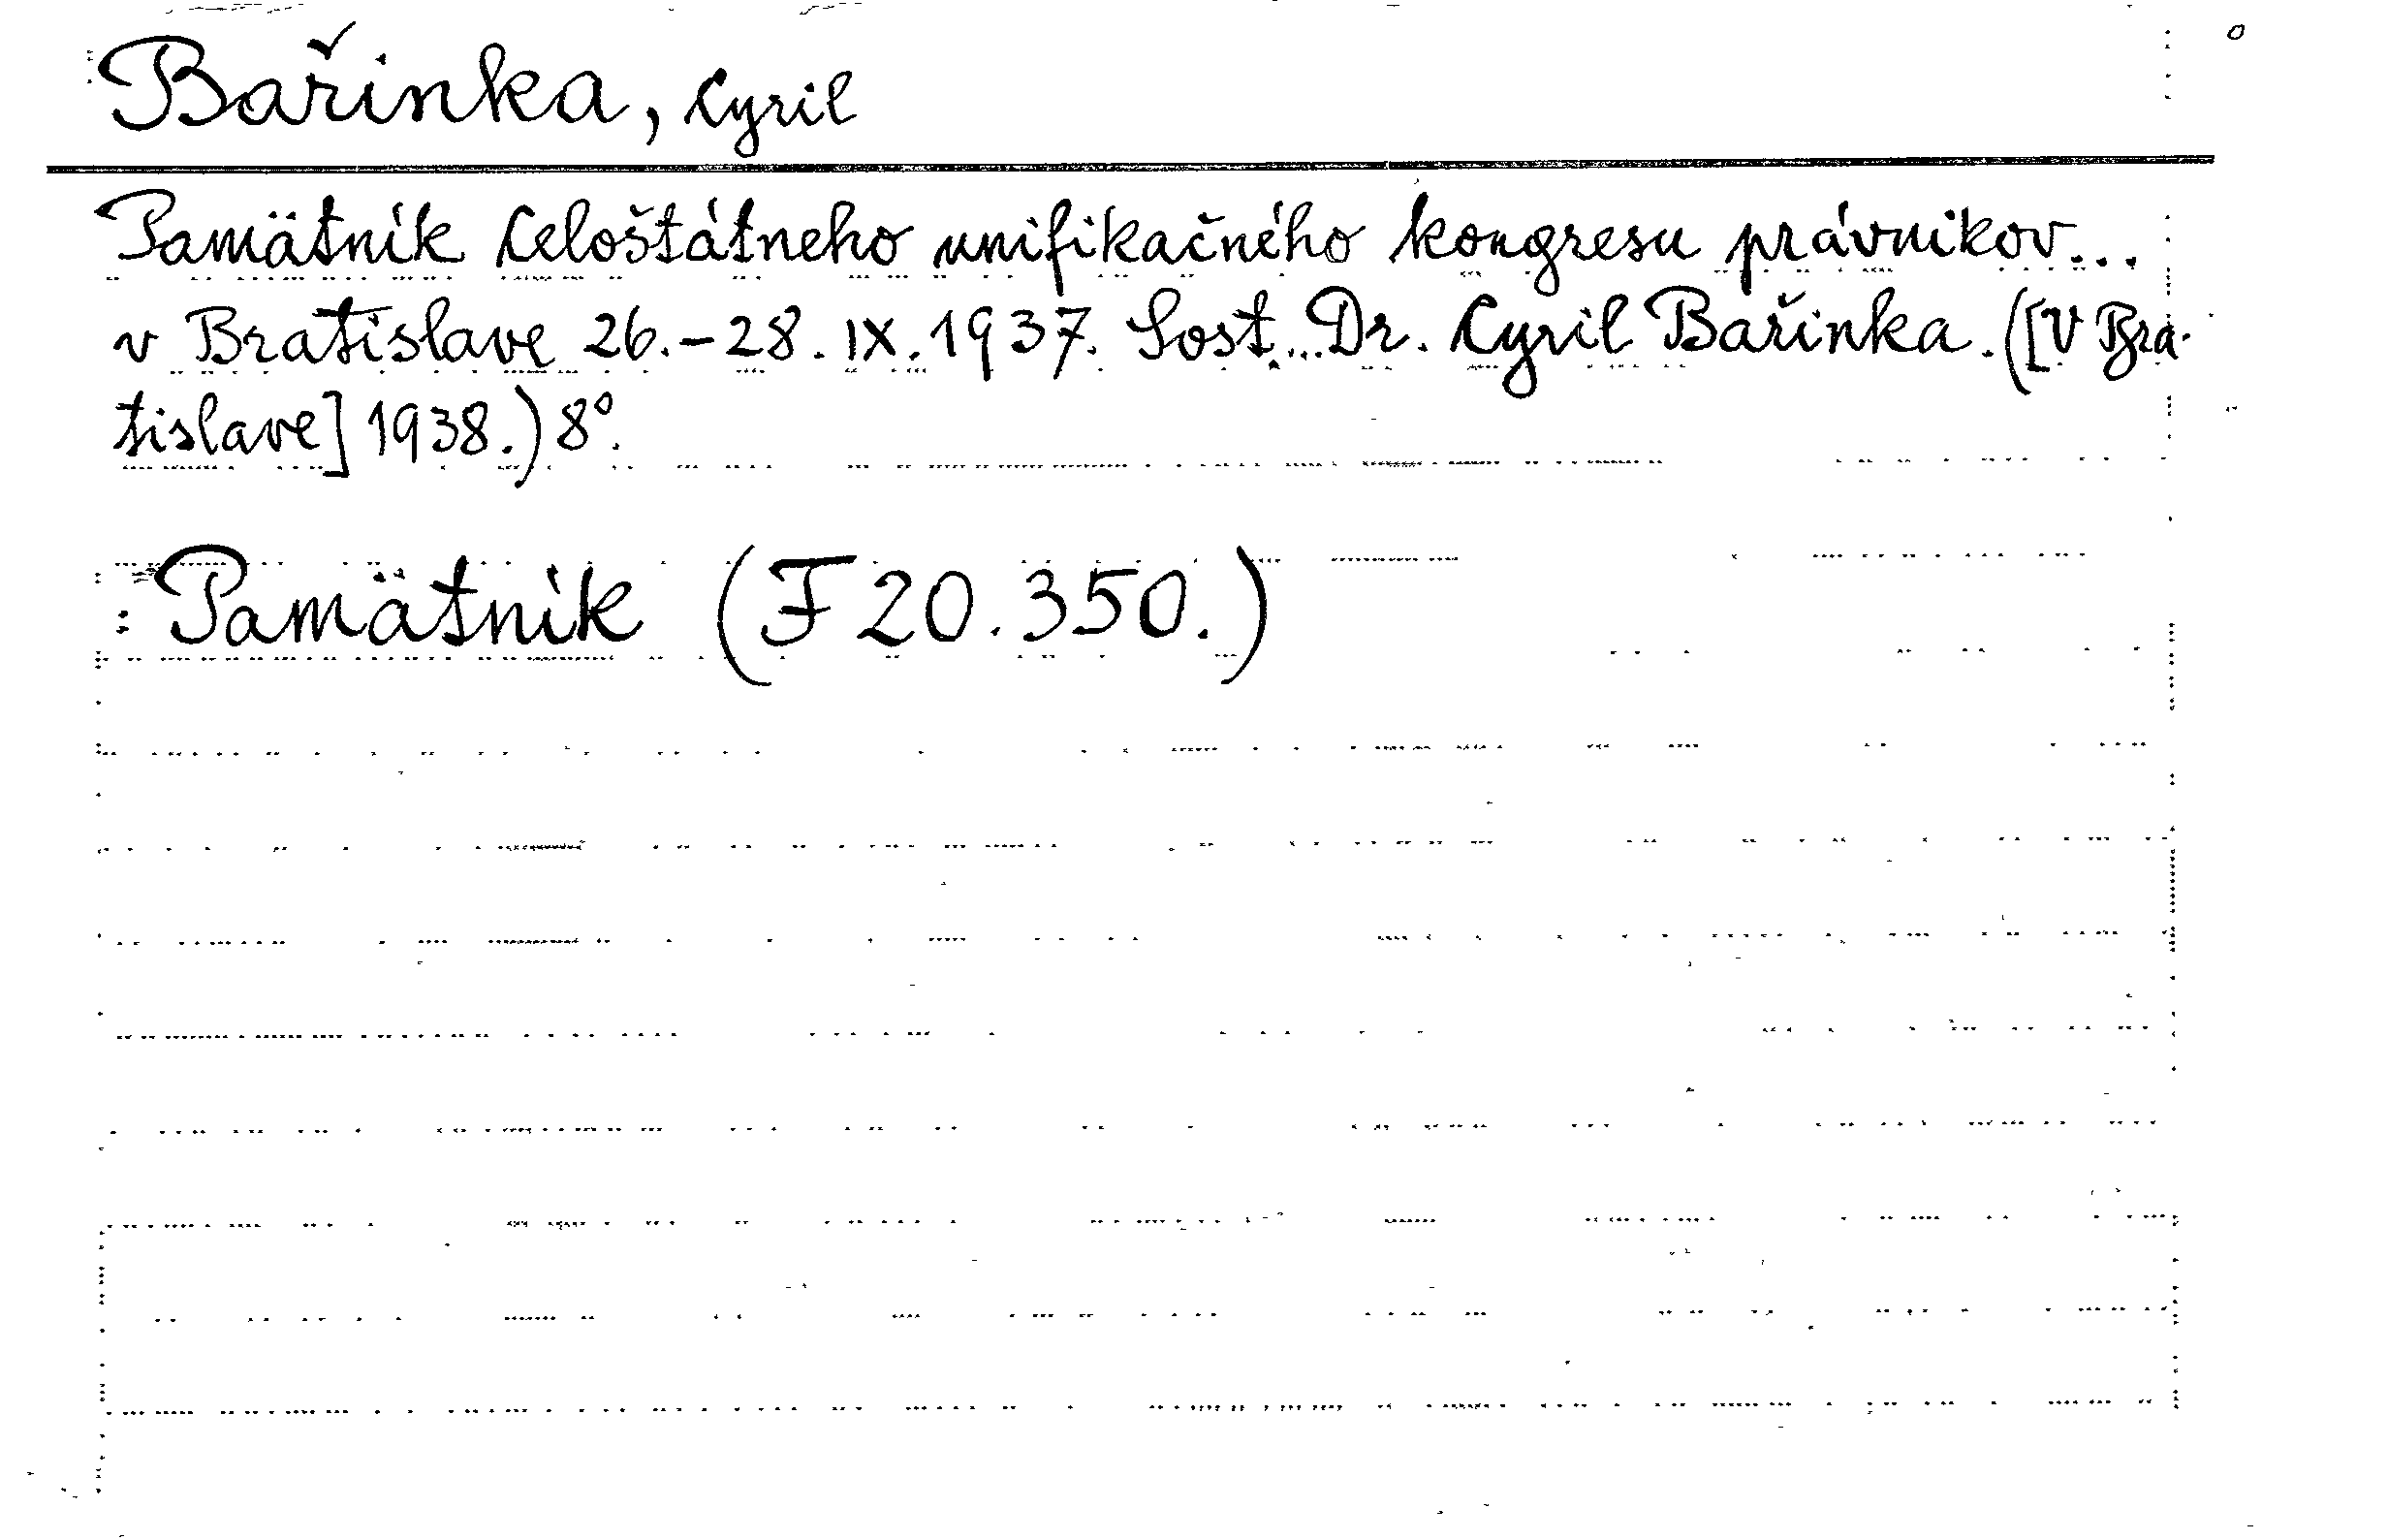 Bařinka, Cyril
Pamätník celoštátneho unifikačného kongresu právnikov...
v Bratislave 26.-28.IX.1937. Sost... Dr. Cyril Bařinka. ([V Bra-
tislave] 1938.) 8°.
Pamätník (F 20.350.)